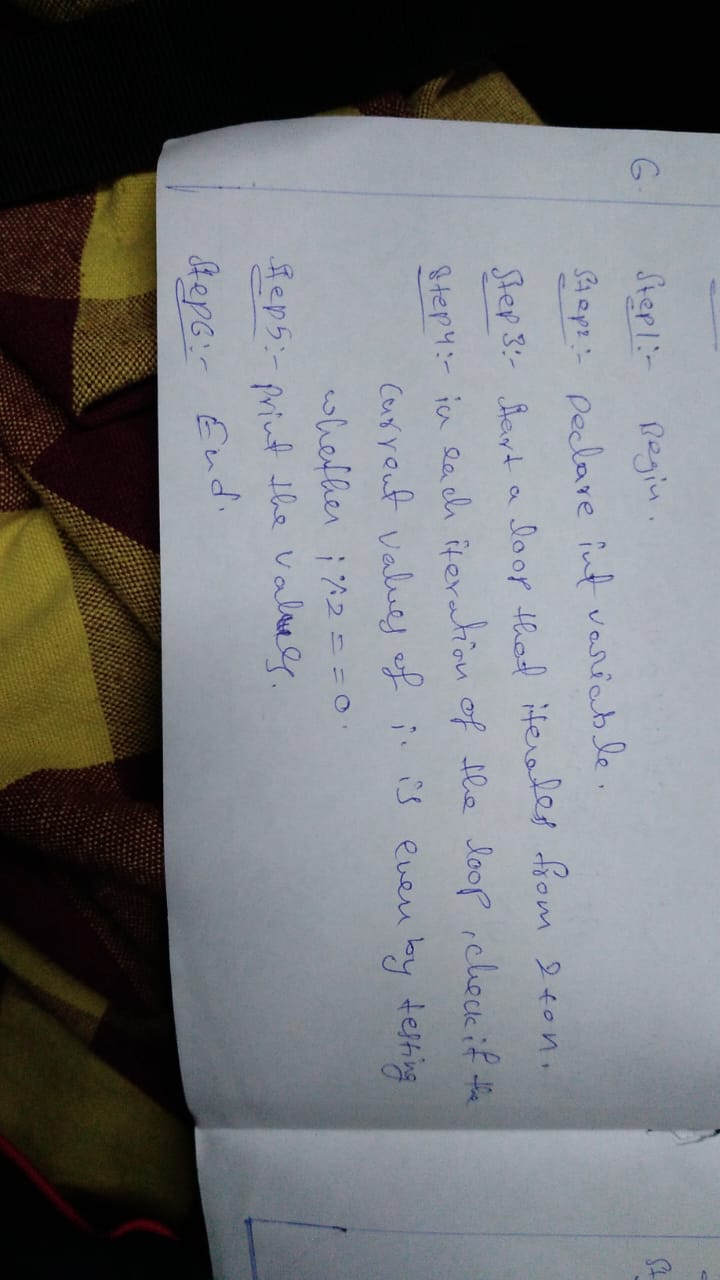 6.
Step1:- Begin.
Step2:- Declare int variable.
Step3:- Start a loop that iterates from 2 to n.
Step4:- in each iteration of the loop, check if the
current values of i. is even by testing
whether i%2==0.
Step5:- print the values.
Step6:- End.